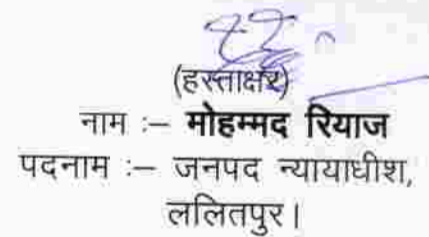 (हस्ताक्षर)
नाम :– मोहम्मद रियाज
पदनाम :– जनपद न्यायाधीश,
ललितपुर।